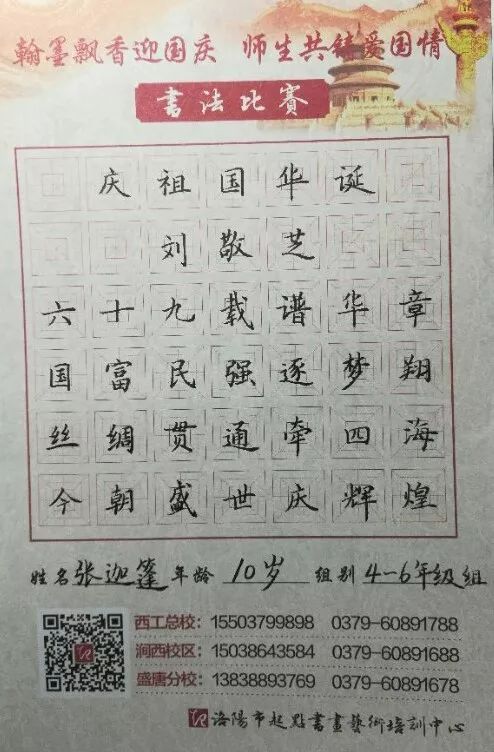 翰墨飘香迎国庆 师生共铸爱国情
书法比赛
庆祖国华诞
刘敬芝
六十九载谱华章
国富民强逐梦翔
丝绸贯通牵四海
今朝盛世庆辉煌
姓名张迦篷年龄 10岁 组别4-6年级组
西工总校：15503799898 0379-60891788
涧西校区：15038643584 0379-60891688
盛唐分校：13838893769 0379-60891678
洛陽市起點書畫藝術培訓中心